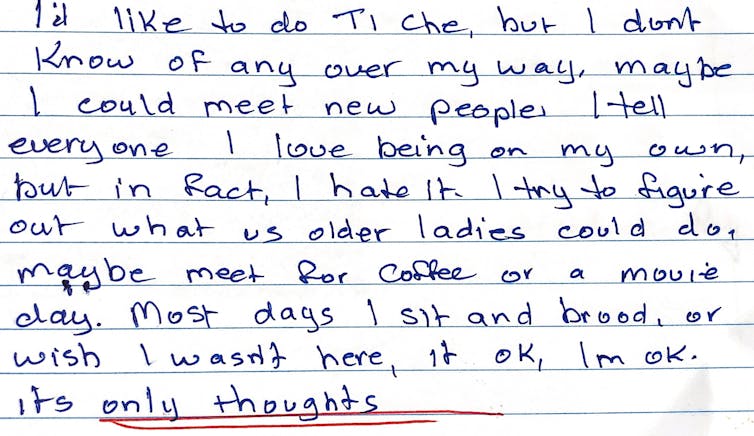 I'd like to do TI Che, but I dont
Know of any over my way, maybe
I could meet new people, I tell
everyone I love being on my own,
but in fact, I hate it. I try to figure
out what us older ladies could do,
maybe meet for coffee or a movie
day. Most days I sit and brood, or
wish I wasn't here, it ok, Im ok.
its only thoughts